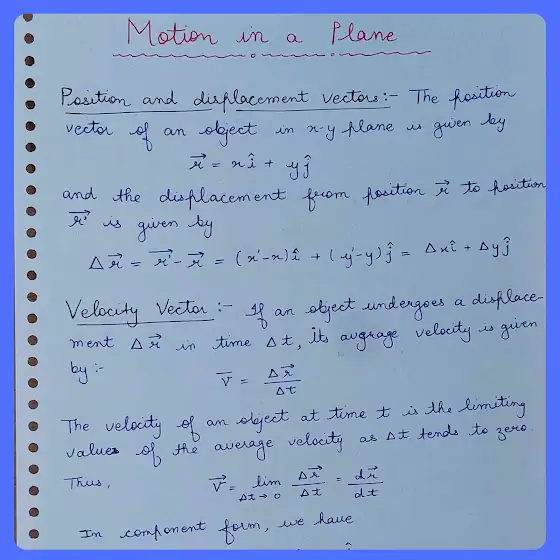 Motion in a Plane
Position and displacement vectors:- The position
vector of an object in x-y plane is given by
r⃗ = xî + yĵ
and the displacement from position r⃗ to position
r⃗' is given by
Δr⃗ = r⃗' - r⃗ = (x'-x)î + (y'-y)ĵ = Δxî + Δyĵ
Velocity Vector :- If an object undergoes a displace-
ment Δr⃗ in time Δt, its avgrage velocity is given
by :-
v̅ = Δr⃗/Δt
The velocity of an object at time t is the limiting
values of the average velocity as Δt tends to zero.
Thus,
v⃗ = lim Δt→0 Δr⃗/Δt = dr⃗/dt
In component form, we have